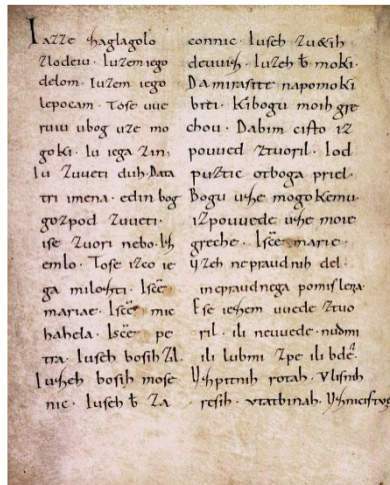 Iazze zaglagolo
zlodeiu. Iuzem iego
delom. Iuzem iego
lepocam. Tose uue
ruiu ubog uze mo
goki. Iu iega zin.
Iu zuueti duh. Data
tri imena. edin bog
gozpod zuueti.
ise zuori nebo. Izh
emlo. Tose izco ie
ga milozhti. Isc̄e
mariae. Isc̄e mic
hahela. Isc̄e pe
tra. Iuseh bosih zil.
Iuzeh bosih mose
nic. Iuseh b̄ za
connic. Iuseh zu&ih
deuuih. Iuzeh b̄ moki.
Da mirasite napomoki
biti. Kibogu moih gre
chou. Dabim cisto iz
pouued ztuoril. Iod
puztic otboga priel.
Bogu uzhe mogokemu.
izpouuede uzhe moie
greche. Isc̄e marie.
Uzeh nepraudnih del.
inepraudnega pomislena.
Ese iezem uuede ztuo
ril. ili neuuede. nudmi
ili lubmi zpe ili bde.
Uzhpitnih rotah. Vlisnih
resih. vtatbinah. Uzhnicistue